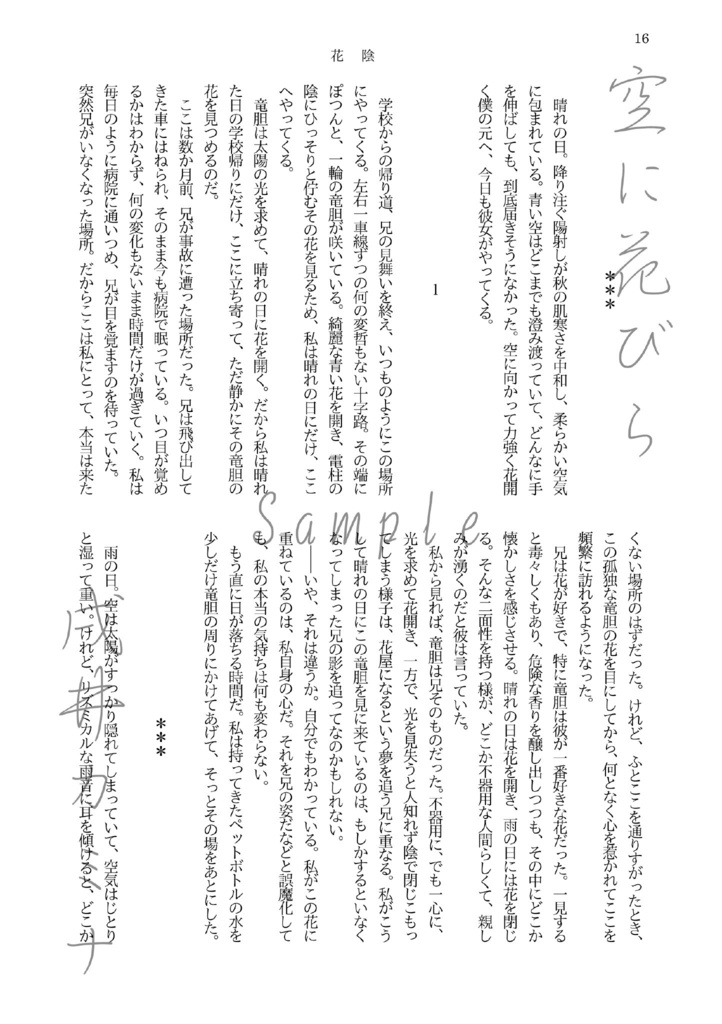 16
花陰
空に花びら
***
晴れの日。降り注ぐ陽射しが秋の肌寒さを中和し、柔らかい空気
に包まれている。青い空はどこまでも澄み渡っていて、どんなに手
を伸ばしても、到底届きそうになかった。空に向かって力強く花開
く僕の元へ、今日も彼女がやってくる。
1
学校からの帰り道、兄の見舞いを終え、いつものようにこの場所
にやってくる。左右一車線ずつの何の変哲もない十字路。その端に
ぽつんと、一輪の竜胆が咲いている。綺麗な青い花を開き、電柱の
陰にひっそりと佇むその花を見るため、私は晴れの日にだけ、ここ
へやってくる。
竜胆は太陽の光を求めて、晴れの日に花を開く。だから私は晴れ
た日の学校帰りにだけ、ここに立ち寄って、ただ静かにその竜胆の
花を見つめるのだ。
ここは数か月前、兄が事故に遭った場所だった。兄は飛び出して
きた車にはねられ、そのまま今も病院で眠っている。いつ目が覚め
るかはわからず、何の変化もないまま時間だけが過ぎていく。私は
毎日のように病院に通いつめ、兄が目を覚ますのを待っていた。
突然兄がいなくなった場所。だからここは私にとって、本当は来た
くない場所のはずだった。けれど、ふとここを通りすがったとき、
この孤独な竜胆の花を目にしてから、何となく心を惹かれてここを
頻繁に訪れるようになった。
兄は花が好きで、特に竜胆は彼が一番好きな花だった。一見する
と毒々しくもあり、危険な香りを醸し出しつつも、その中にどこか
懐かしさを感じさせる。晴れの日は花を開き、雨の日には花を閉じ
る。そんな二面性を持つ様が、どこか不器用な人間らしくて、親し
みが湧くのだと彼は言っていた。
私から見れば、竜胆は兄そのものだった。不器用に、でも一心に、
光を求めて花開き、一方で、光を見失うと人知れず陰で閉じこもっ
てしまう様子は、花屋になるという夢を追う兄に重なる。私がこう
して晴れの日にこの竜胆を見に来ているのは、もしかするといなく
なってしまった兄の影を追ってなのかもしれない。
――いや、それは違うか。自分でもわかっている。私がこの花に
重ねているのは、私自身の心だ。それを兄の姿だなどと誤魔化して
も、私の本当の気持ちは何も変わらない。
もう直に日が落ちる時間だ。私は持ってきたペットボトルの水を
少しだけ竜胆の周りにかけてあげて、そっとその場をあとにした。
***
雨の日。空は太陽がすっかり隠れてしまっていて、空気はじとり
と湿って重い。けれど、リズミカルな雨音に耳を傾けると、どこか
Sample